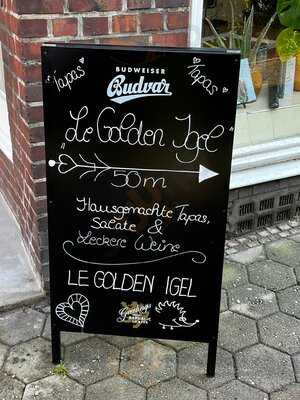 BUDWEISER
Budvar
Tapas
Tapas
"Le Golden Igel"
50m
Hausgemachte Tapas,
Salate &
Leckere Weine
LE GOLDEN IGEL